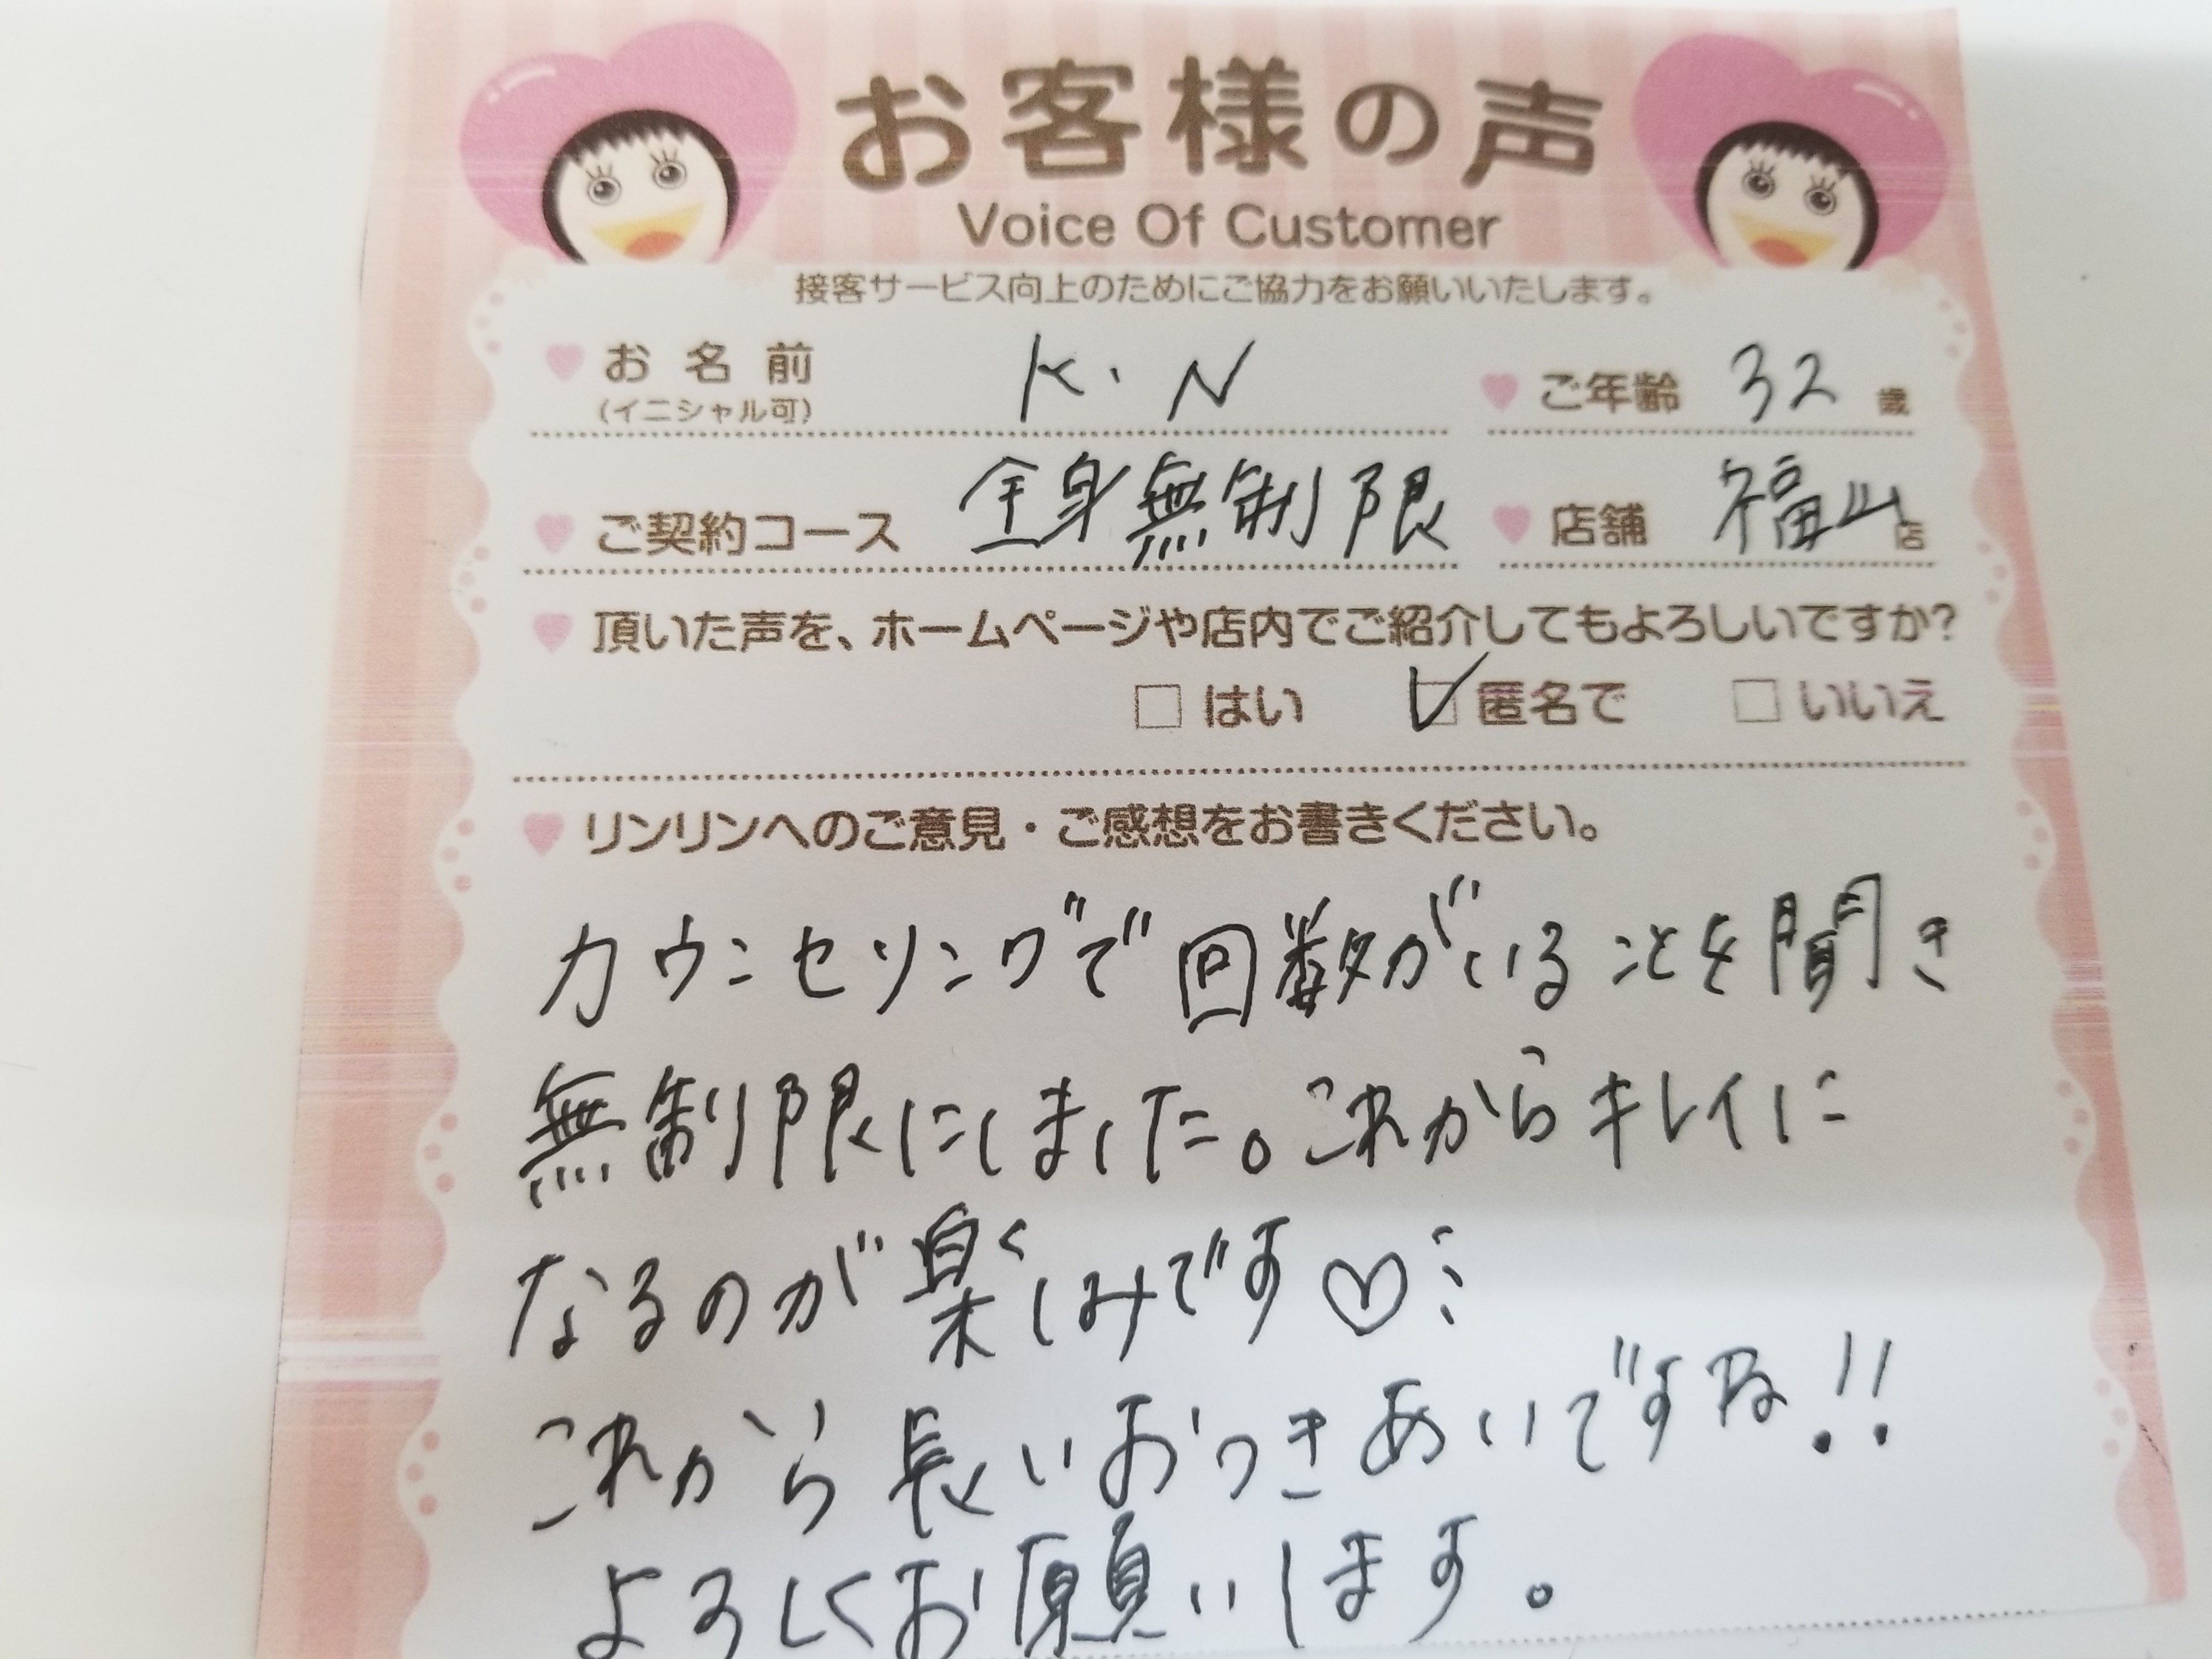 お客様の声
Voice Of Customer
接客サービス向上のためにご協力をお願いいたします。
お名前 K.N ご年齢 32 歳
(イニシャル可)
ご契約コース 全身無制限 店舗 福山店
頂いた声を、ホームページや店内でご紹介してもよろしいですか?
はい 匿名で いいえ
リンリンへのご意見・ご感想をお書きください。
カウンセリングで回数がいることを聞き
無制限にしました。これからキレイに
なるのが楽しみです♡
これから長いおつきあいですね!!
よろしくお願いします。